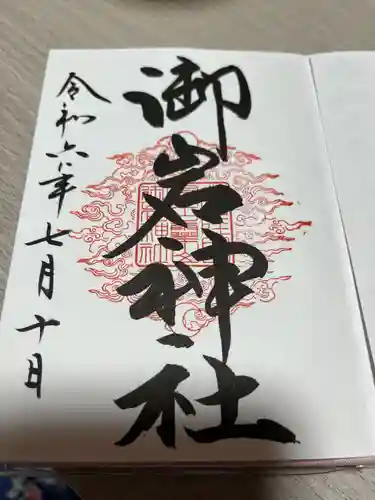 御岩神社
令和六年七月十日